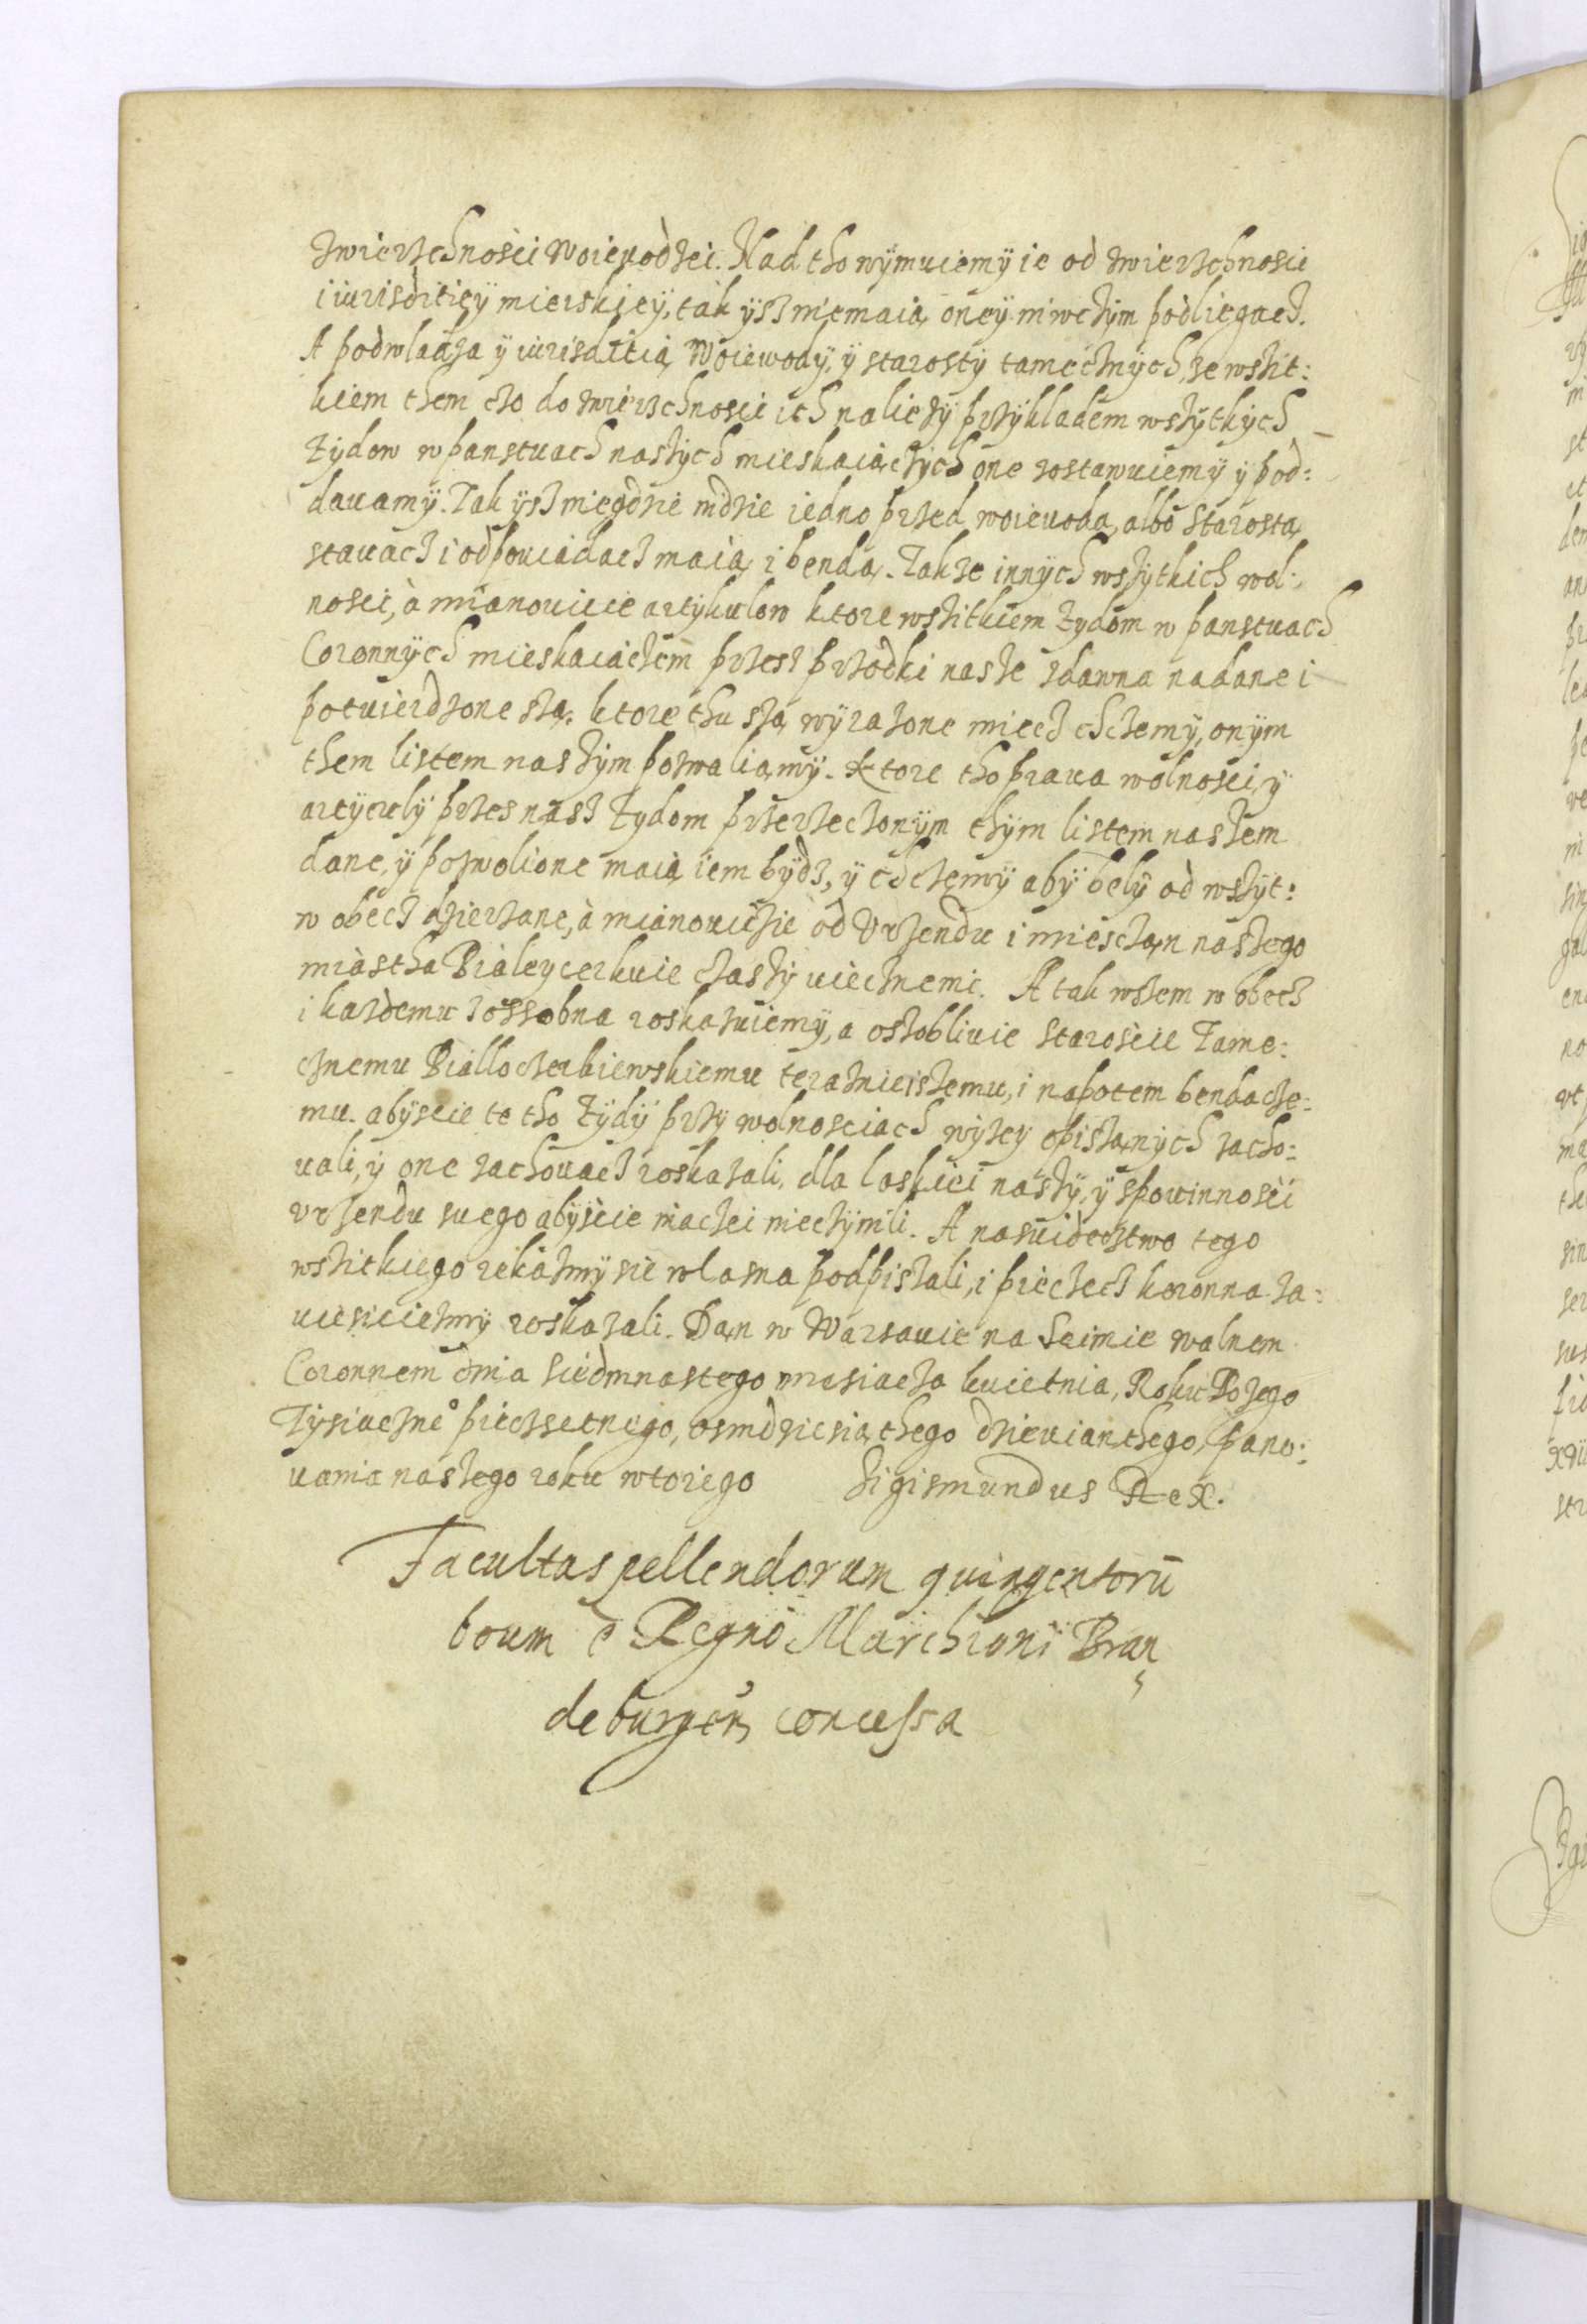 zwierzchnosci woievodzei. Nad tho wÿmuiemÿ ie od zwierzchnoscie
i iurisditieÿ mierskieÿ, tak ÿsz niemaią oneÿ niwczÿm podliegacz.
A pod wladzą ÿ iurisditią Woiewodÿ, ÿ starostÿ tamecznÿch, ze wszit:
kiem them czo do zwierzchnosci ich naliezÿ przÿkladem wszÿtkÿch
Zydow w panstuach naszÿch mieskaiączÿch one zostawuiemÿ ÿ pod:
davamÿ. Tak ÿsz niegdzie indzie iedno przed woievodą, albo Starostą
stavacz i odpouiadacz maią i bendą. Takze innÿch wszÿtkich wol:
nosci, à mianouicie artÿkulow ktore wszitkiem Zydom w panstuach
Coronnÿch mieskaiączem przesz przodki nasze zdawna nadane i
potuierdzone szą. ktore thu szą wÿrazone miecz chczemÿ, onÿm
them listem naszÿm pozwaliamÿ. Ktore tho praua wolnosci, ÿ
artÿculÿ przes nasz Zydom przerzeczonÿm thÿm listem naszem
dane, ÿ pozwolione maią iem bÿdz, ÿ chczemÿ abÿ belÿ od wszÿt:
w obecz dzierzane, à mianouiczie od Vrzendu i miesczan naszego
miàstha Bialeycerkuie czaszÿ uiecznemi. A tak wszem w obecz
i kazdemu zossobna roskazuiemÿ, a oszobliuie staroscie Tame:
cznemu Bialloczerkiewskiemu teraznieiszemu, i napotem bendacze:
mu. abÿscie te tho Zÿdÿ przÿ wolnosciach wÿzeÿ opiszanÿch zacho:
uali, ÿ one zachouacz roskazali, dla laskiei naszÿ, ÿ spouinnosci
vrzendu suego abÿscie inaczei nieczÿnili. A nasuideoztwo tego
wszitkiego rekaszmÿ sie wlasna podpiszali, i pieczecz koronna za:
uiesiciezmÿ roskazali. Dan w Warsauie na Seimie walnem
Coronnem dnia siedmnastego miesiacza kuietnia, Roku Bozego
Tÿsiaczne° pieczsetnego, osmdziesiąthego dzieuianthego, pano:
uania naszego roku wtoriego Sigismundus Rex.
Facultas pellendorum quingentorū
boum è Regno Marchioni Bran
deburgen concessa